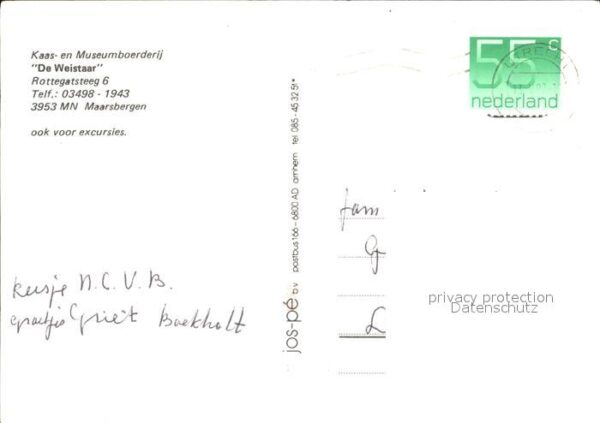 Kaas- en Museumboerderij
"De Weistaar"
Rottegatsteeg 6
Telf.: 03498 - 1943
3953 MN Maarsbergen
ook voor excursies.
reisje N.C.V.B.
groetjes Griet Boekholt
jos-pé bv postbus 166 - 6800 AD arnhem tel 085 - 45 32 51*
55c
nederland
fam
G
L
privacy protection
Datenschutz